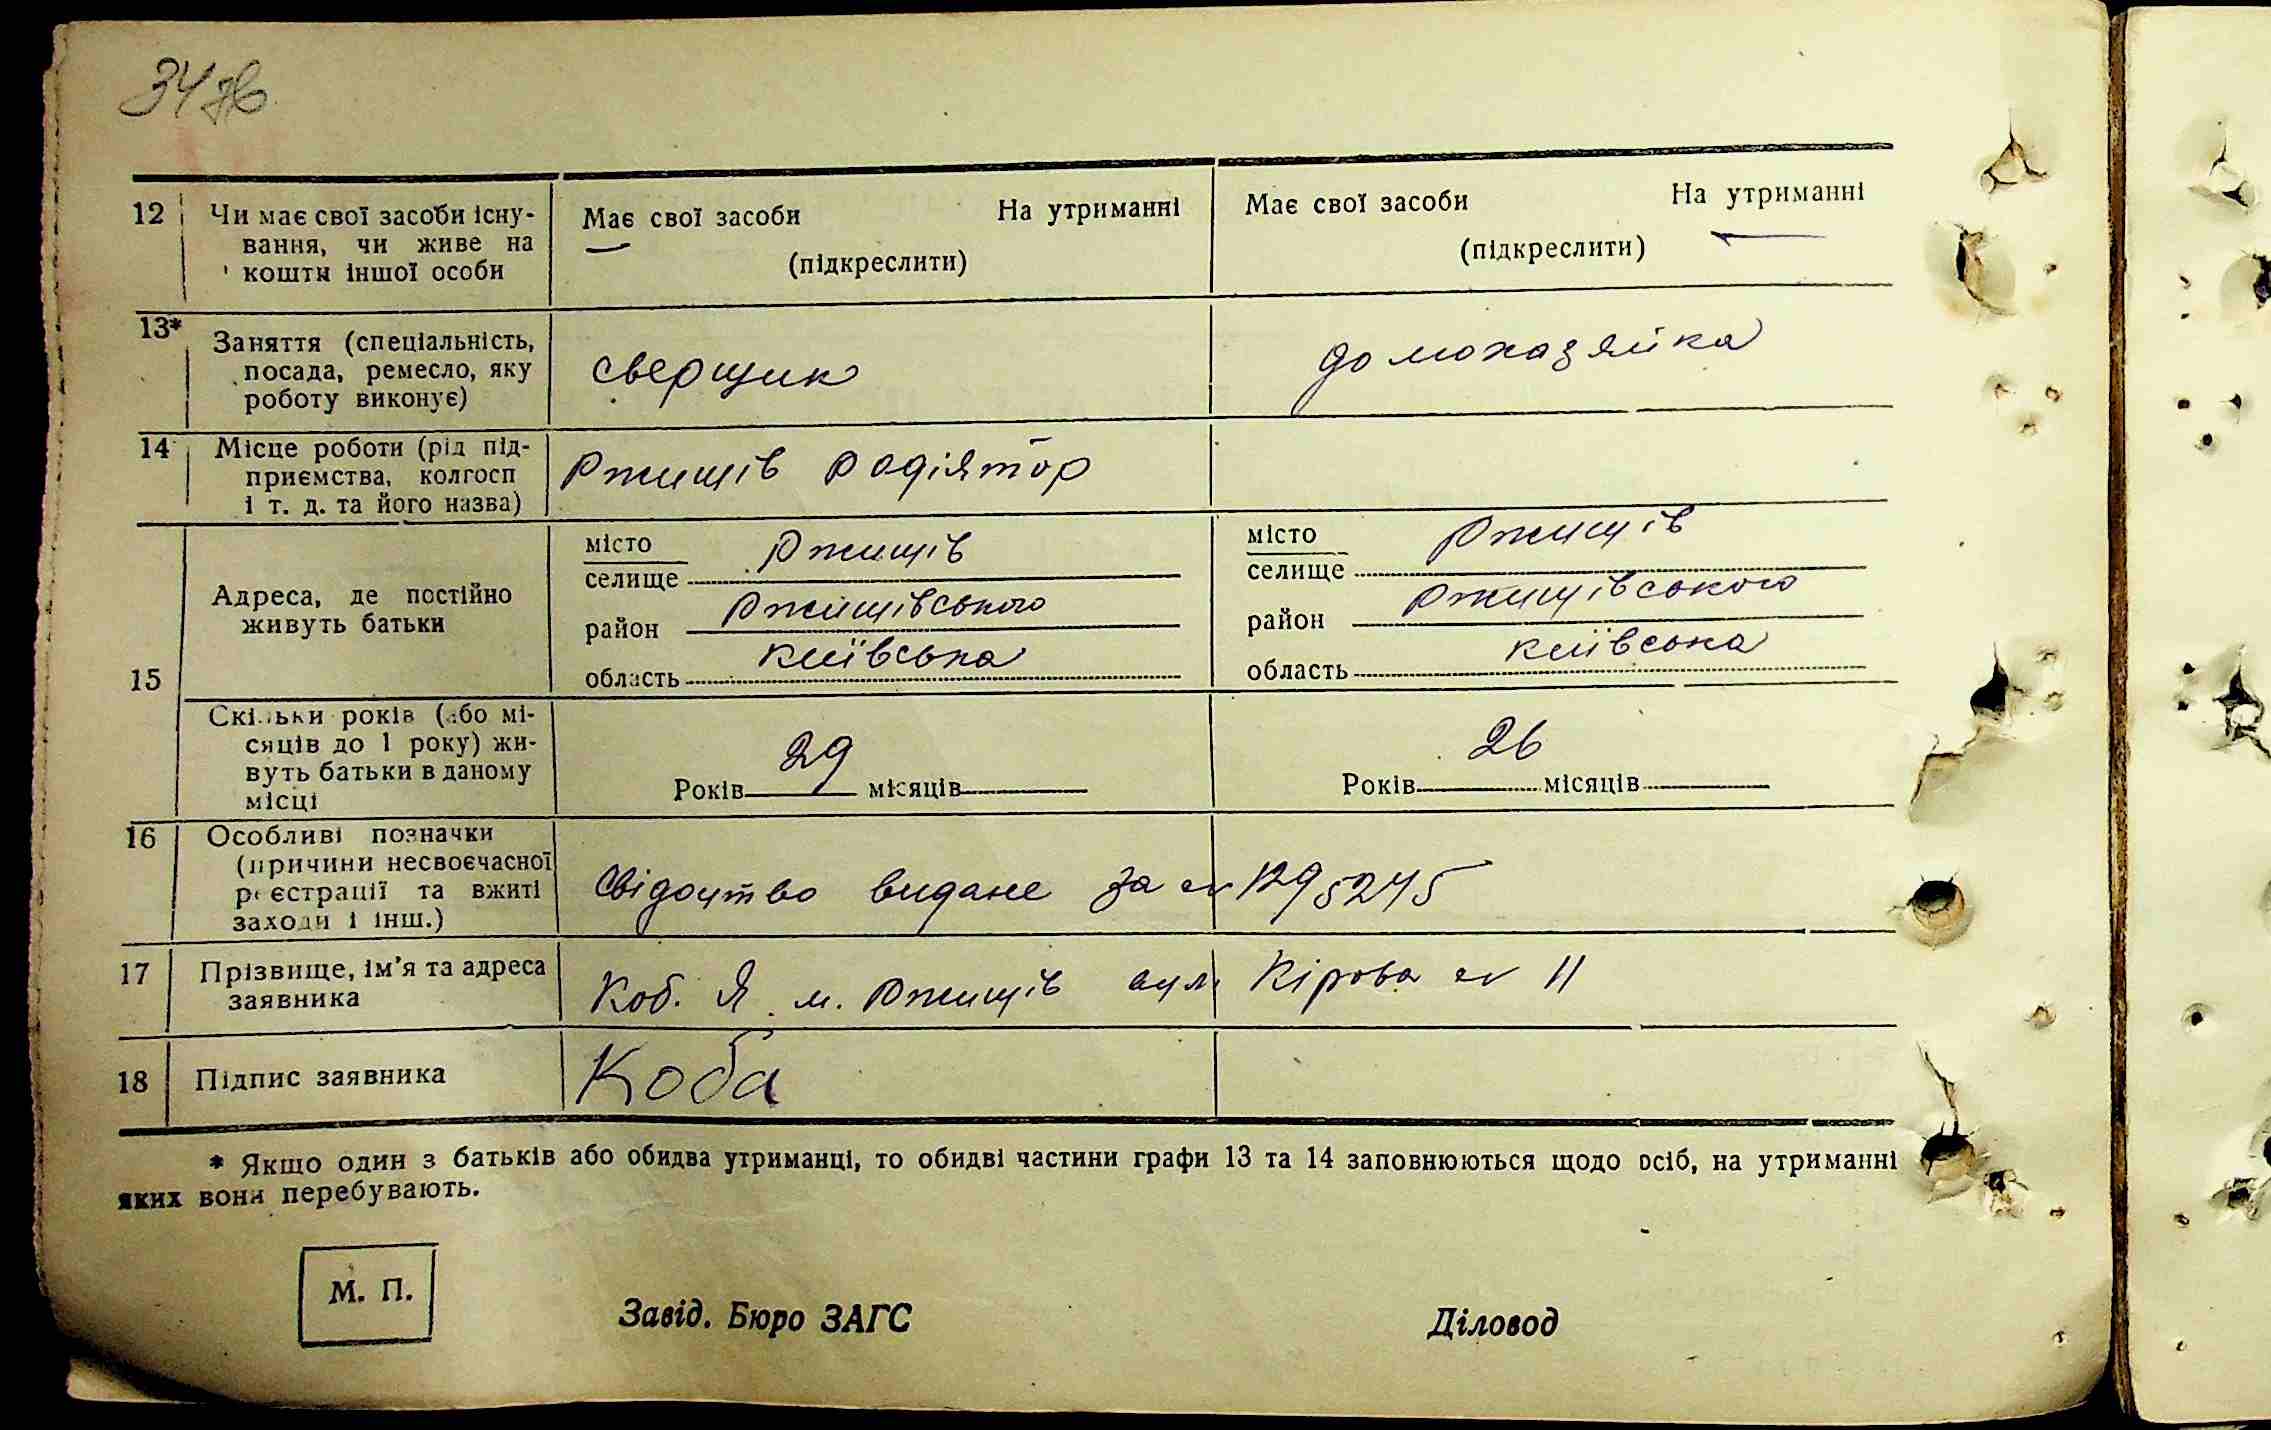 34 зв
12 Чи має свої засоби існу-
вання, чи живе на
кошти іншої особи
Має свої засоби На утриманні
(підкреслити)
Має свої засоби На утриманні
(підкреслити)
13* Заняття (спеціальність,
посада, ремесло, яку
роботу виконує)
сверщик
домохазяйка
14 Місце роботи (рід під-
приємства, колгосп
і т. д. та його назва)
Ржищів радіятор
15
Адреса, де постійно
живуть батьки
місто Ржищів
селище
район Ржищівського
область київська
місто Ржищів
селище
район Ржищівського
область київська
Скільки років (або мі-
сяців до 1 року) жи-
вуть батьки в даному
місці
Років 29 місяців
Років 26 місяців
16 Особливі позначки
(причини несвоєчасної
реєстрації та вжиті
заходи і інш.)
Свідоцтво видане за № 1295245
17 Прізвище, ім'я та адреса
заявника
Коб. Я м. Ржищів вул. Кірова № 11
18 Підпис заявника
Коба
* Якщо один з батьків або обидва утриманці, то обидві частини графи 13 та 14 заповнюються щодо осіб, на утриманні
яких вони перебувають.
М. П.
Завід. Бюро ЗАГС Діловод